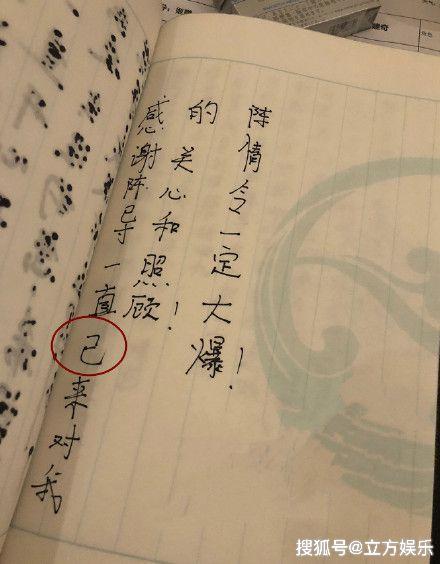 感谢陈导一直己来对我
的关心和照顾！
陈情令一定大爆！
搜狐号@立方娱乐